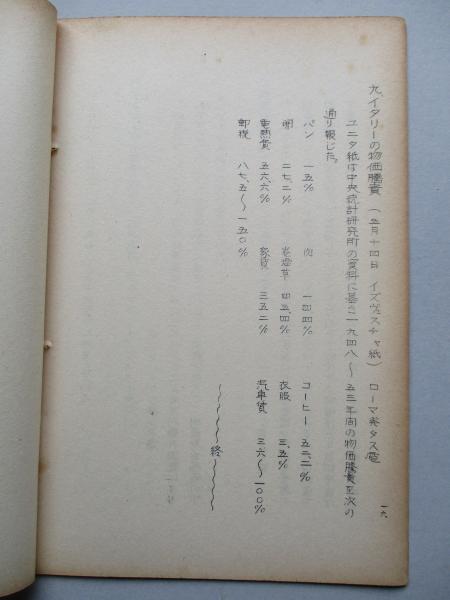 九、イタリーの物価騰貴 (五月十四日 イズヴェスチャ紙) ローマ発タス電
ユニタ紙は中央統計研究所の資料に基き一九四八〜五三年間の物価騰貴を次の
通り報じた。
パン 一五% 肉 一四四% コーヒー 五二、二%
二七、二% 巻煙草 四五、四% 衣服 三、五%
電熱費 五六、六% 家賃 三五二% 汽車賃 三六〜一〇〇%
郵税 八七、五〜一五〇%
〜〜〜〜終〜〜〜〜
一六